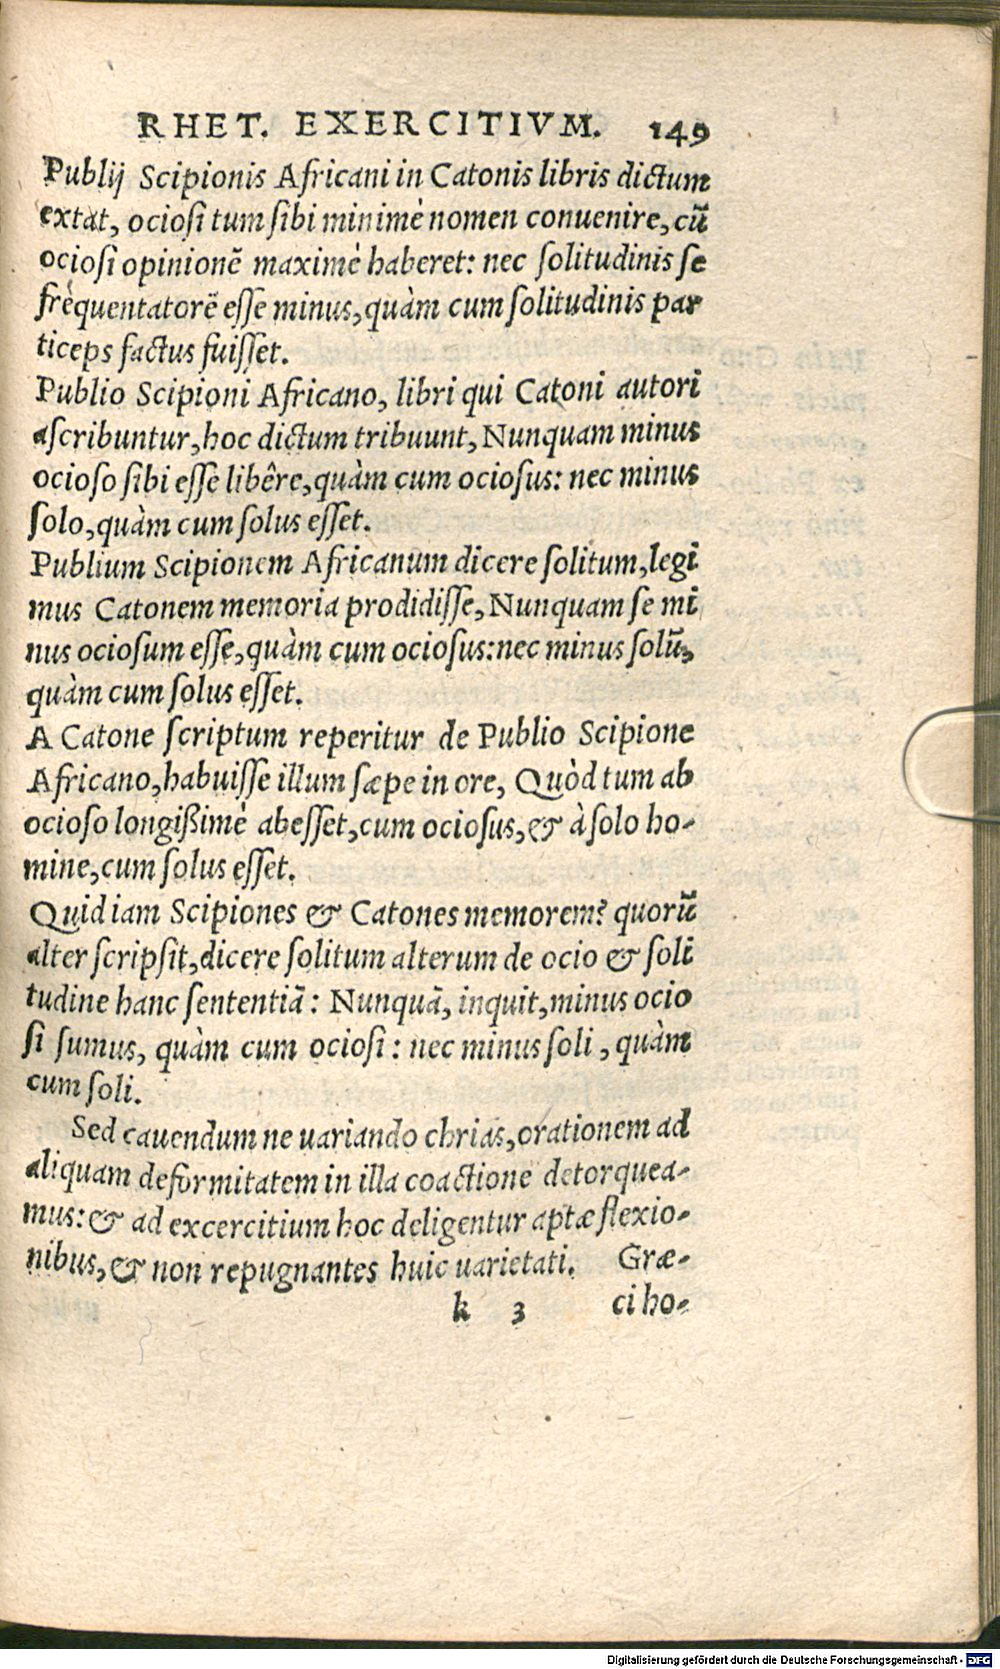 RHET. EXERCITIVM. 149
Publij Scipionis Africani in Catonis libris dictum
extat, ociosi tum sibi minimè nomen conuenire, cū
ociosi opinionē maximè haberet: nec solitudinis se
frequentatorē esse minus, quàm cum solitudinis par
ticeps factus fuisset.
Publio Scipioni Africano, libri qui Catoni autori
ascribuntur, hoc dictum tribuunt, Nunquam minus
ocioso sibi esse libêre, quàm cum ociosus: nec minus
solo, quàm cum solus esset.
Publium Scipionem Africanum dicere solitum, legi
mus Catonem memoria prodidisse, Nunquam se mi
nus ociosum esse, quàm cum ociosus: nec minus solū,
quàm cum solus esset.
A Catone scriptum reperitur de Publio Scipione
Africano, habuisse illum sæpe in ore, Quòd tum ab
ocioso longißimè abesset, cum ociosus, & à solo ho-
mine, cum solus esset.
Quid iam Scipiones & Catones memorem? quorū
alter scripsit, dicere solitum alterum de ocio & soli
tudine hanc sententiā: Nunquā, inquit, minus ocio
si sumus, quàm cum ociosi: nec minus soli, quàm
cum soli.
Sed cauendum ne uariando chrias, orationem ad
aliquam deformitatem in illa coactione detorquea-
mus: & ad excercitium hoc deligentur aptæ flexio-
nibus, & non repugnantes huic uarietati. Græ-
k 3 ci ho-
Digitalisierung gefördert durch die Deutsche Forschungsgemeinschaft - DFG